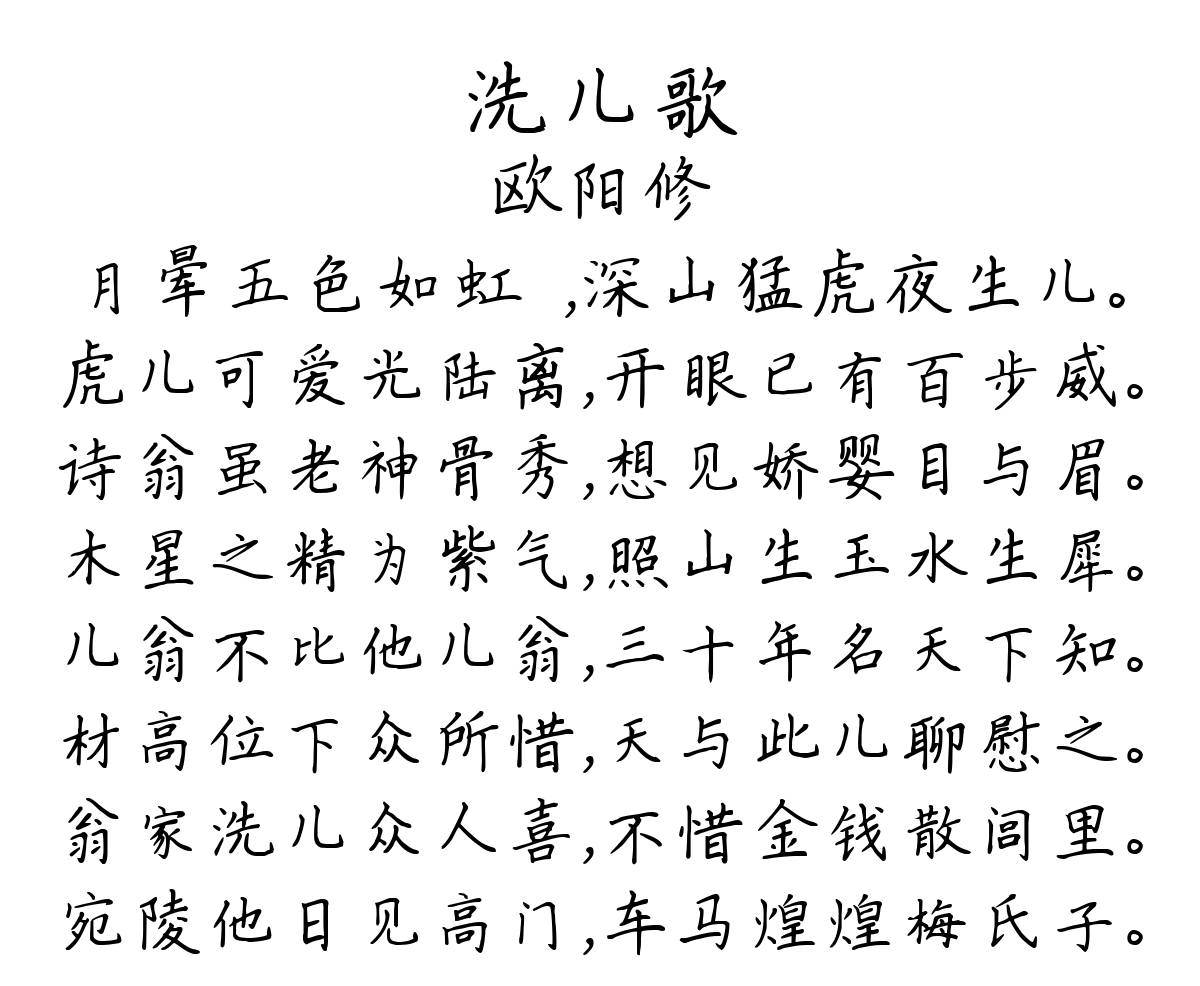 洗儿歌
欧阳修
月晕五色如虹 ,深山猛虎夜生儿。
虎儿可爱光陆离,开眼已有百步威。
诗翁虽老神骨秀,想见娇婴目与眉。
木星之精为紫气,照山生玉水生犀。
儿翁不比他儿翁,三十年名天下知。
材高位下众所惜,天与此儿聊慰之。
翁家洗儿众人喜,不惜金钱散闾里。
宛陵他日见高门,车马煌煌梅氏子。